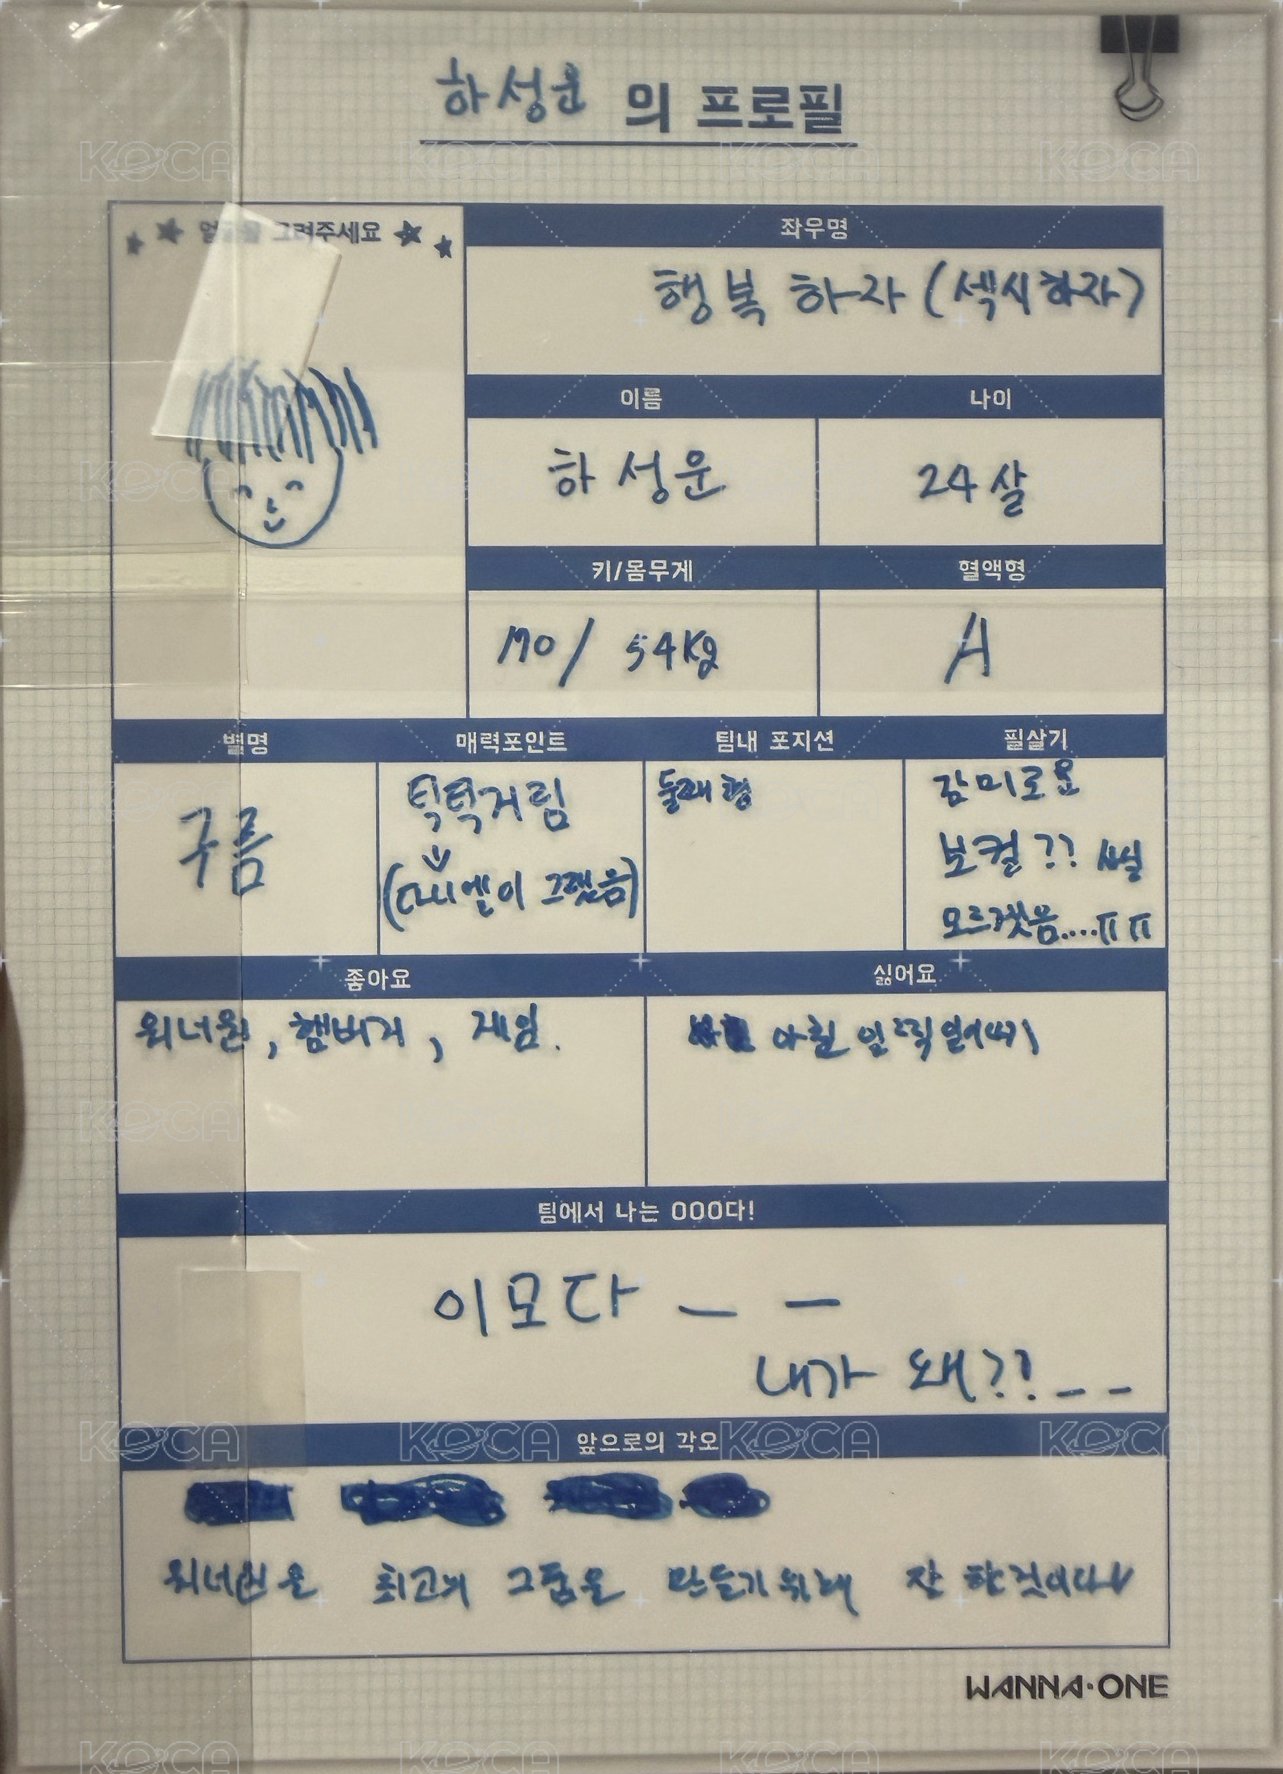 하성운 의 프로필
얼굴을 그려주세요
좌우명
행복 하자 (섹시하자)
이름
나이
하성운
24살
키/몸무게
혈액형
170 / 54kg
A
별명
매력포인트
팀내 포지션
필살기
구름
틱틱거림
(다니엘이 그랬음)
둘째 형
감미로운
보컬?? 사실
모르겟음....ㅠㅠ
좋아요
싫어요
워너원, 햄버거, 게임.
아침 일찍 일어나기
팀에서 나는 OOO다!
이모다 _ _
내가 왜??_ _
앞으로의 각오
워너원을 최고의 그룹을 만들기 위해 잘 할것이다
WANNA·ONE
KOCA